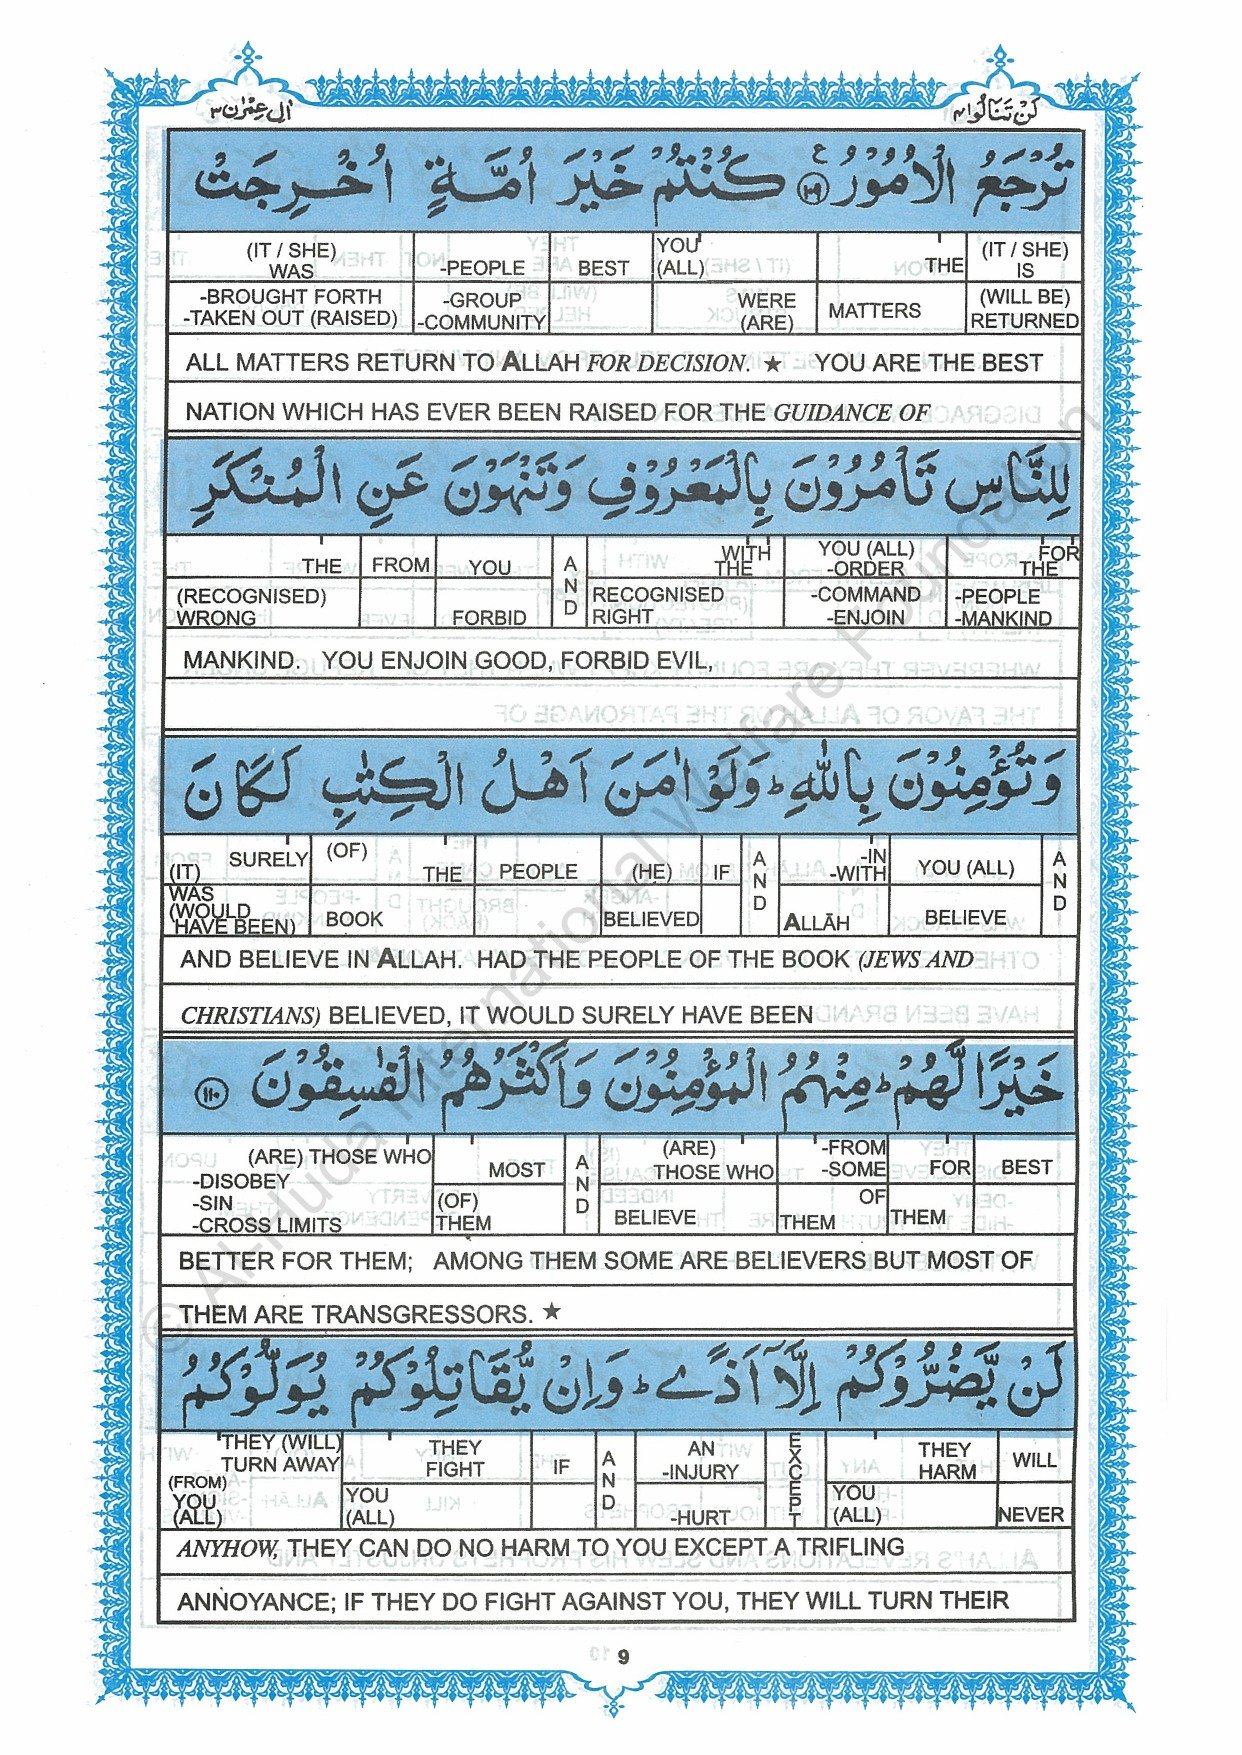 اٰلِ عِمْرٰن ٣
لَنْ تَنَالُوا ٤
تُرْجَعُ الْاُمُوْرُ ۝١٠٩ ع كُنْتُمْ خَيْرَ اُمَّةٍ اُخْرِجَتْ
(IT / SHE) WAS -PEOPLE BEST YOU (ALL) THE (IT / SHE) IS
-BROUGHT FORTH -TAKEN OUT (RAISED) -GROUP -COMMUNITY WERE (ARE) MATTERS (WILL BE) RETURNED
ALL MATTERS RETURN TO ALLAH FOR DECISION. ★ YOU ARE THE BEST
NATION WHICH HAS EVER BEEN RAISED FOR THE GUIDANCE OF
لِلنَّاسِ تَاْمُرُوْنَ بِالْمَعْرُوْفِ وَتَنْهَوْنَ عَنِ الْمُنْكَرِ
THE FROM YOU AND WITH THE YOU (ALL) -ORDER FOR THE
(RECOGNISED) WRONG FORBID RECOGNISED RIGHT -COMMAND -ENJOIN -PEOPLE -MANKIND
MANKIND. YOU ENJOIN GOOD, FORBID EVIL,
وَتُؤْمِنُوْنَ بِاللّٰهِ ؕ وَلَوْ اٰمَنَ اَهْلُ الْكِتٰبِ لَكَانَ
(IT) SURELY (OF) THE PEOPLE (HE) IF AND -IN -WITH YOU (ALL) AND
WAS (WOULD HAVE BEEN) BOOK BELIEVED ALLĀH BELIEVE
AND BELIEVE IN ALLAH. HAD THE PEOPLE OF THE BOOK (JEWS AND
CHRISTIANS) BELIEVED, IT WOULD SURELY HAVE BEEN
خَيْرًا لَّهُمْ ؕ مِنْهُمُ الْمُؤْمِنُوْنَ وَاَكْثَرُهُمُ الْفٰسِقُوْنَ ۝١١٠
(ARE) THOSE WHO MOST AND (ARE) THOSE WHO -FROM -SOME FOR BEST
-DISOBEY -SIN -CROSS LIMITS (OF) THEM BELIEVE OF THEM THEM
BETTER FOR THEM; AMONG THEM SOME ARE BELIEVERS BUT MOST OF
THEM ARE TRANSGRESSORS. ★
لَنْ يَّضُرُّوْكُمْ اِلَّاۤ اَذًى ؕ وَاِنْ يُّقَاتِلُوْكُمْ يُوَلُّوْكُمُ
THEY (WILL) TURN AWAY THEY FIGHT IF AND AN -INJURY EXCEPT THEY HARM WILL
(FROM) YOU (ALL) YOU (ALL) -HURT YOU (ALL) NEVER
ANYHOW, THEY CAN DO NO HARM TO YOU EXCEPT A TRIFLING
ANNOYANCE; IF THEY DO FIGHT AGAINST YOU, THEY WILL TURN THEIR
9
© Al-Huda International Welfare Foundation